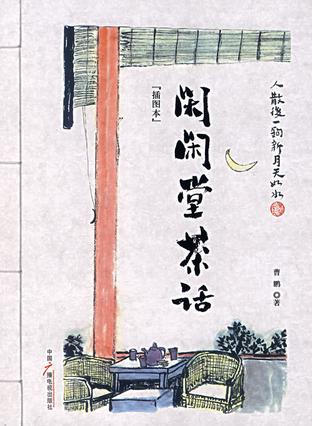 人散後一鈎新月天如水
曹鹏 著
闲闲堂茶话
「插图本」
中国
广播电视出版社